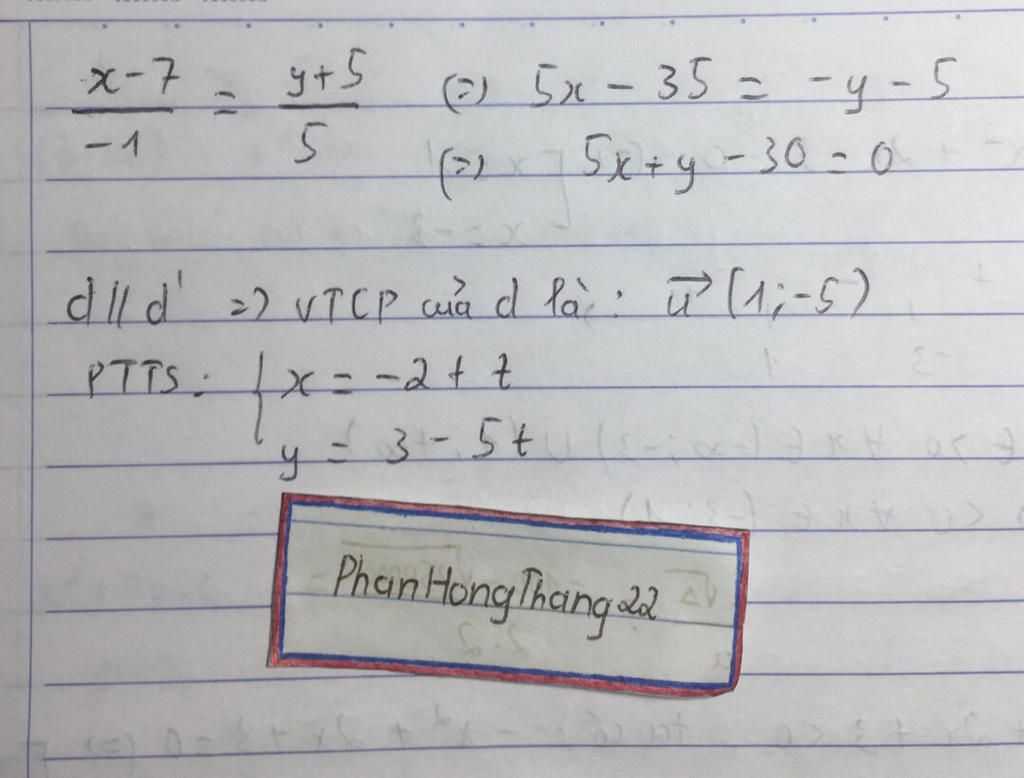 x-7/-1 = y+5/5 (=) 5x - 35 = -y - 5
(=) 5x + y - 30 = 0
d // d' =) VTCP của d là: u→ (1; -5)
PTTS: { x = -2 + t
y = 3 - 5t
PhanHongThang22